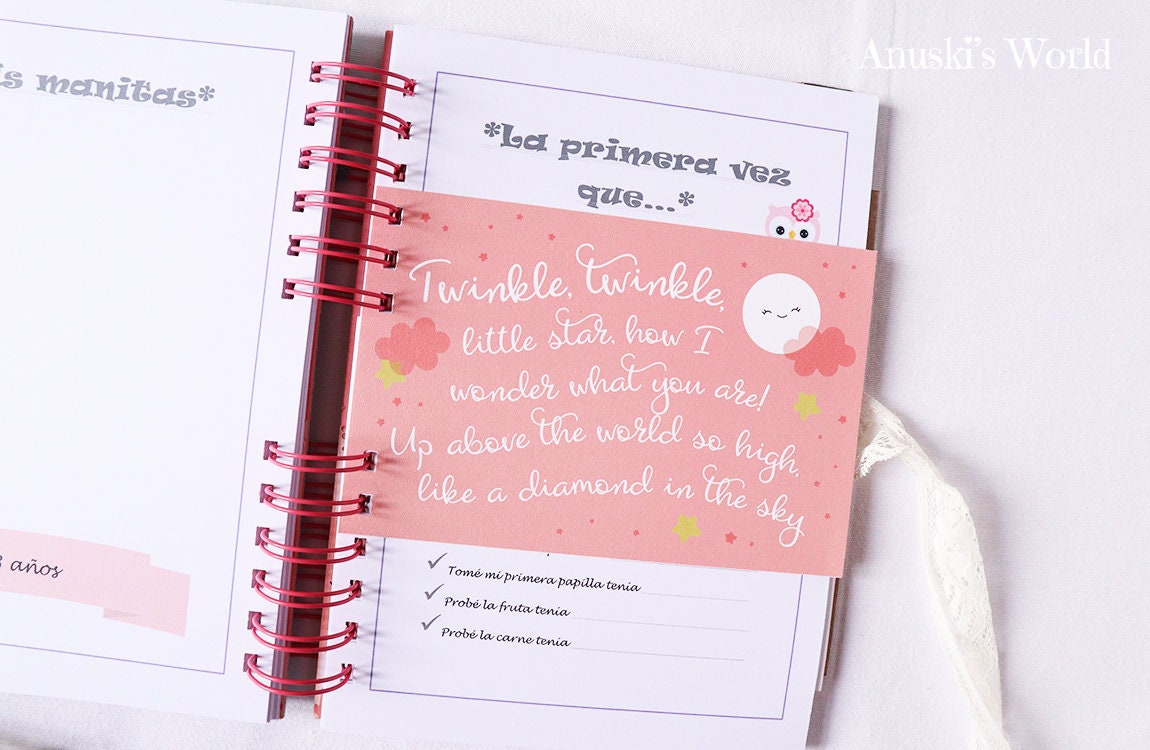 Anuski's World
manitas*
años
*La primera vez
que...*
Twinkle, twinkle,
little star, how I
wonder what you are!
Up above the world so high,
like a diamond in the sky
Tomé mi primera papilla tenia
Probé la fruta tenia
Probé la carne tenia